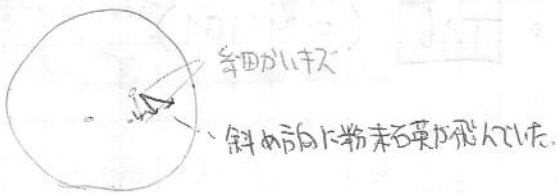 細かいキズ
斜め方向に粉末石英が飛んでいた。